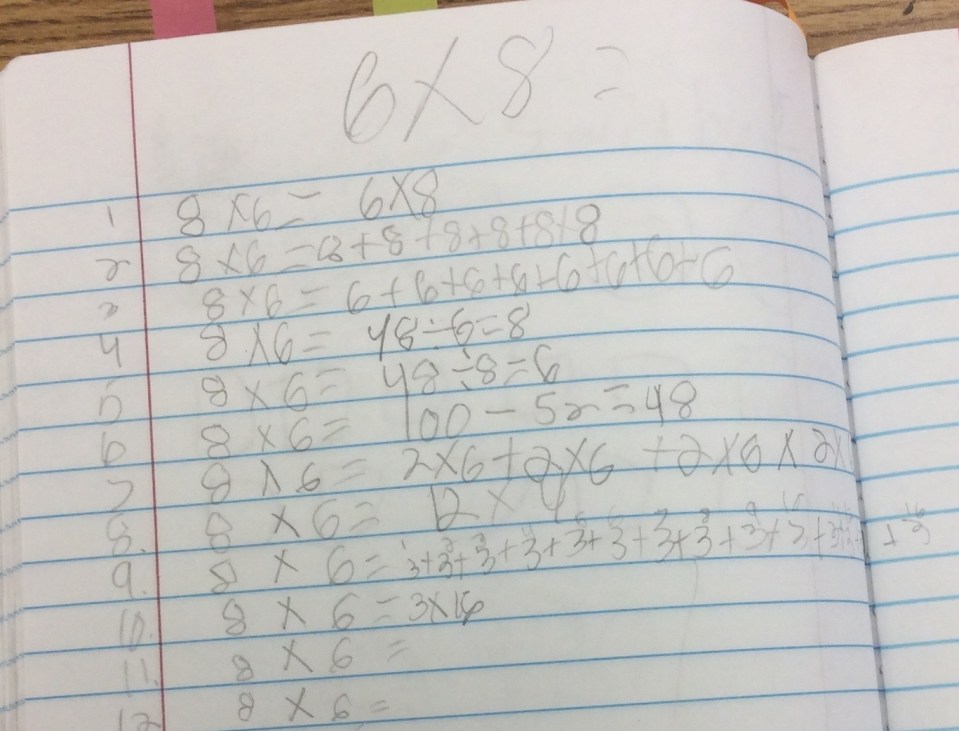 6 x 8 =
1 8 x 6 = 6 x 8
2 8 x 6 = 8 + 8 + 8 + 8 + 8 + 8
3 8 x 6 = 6 + 6 + 6 + 6 + 6 + 6 + 6 + 6
4 8 x 6 = 48 ÷ 6 = 8
5 8 x 6 = 48 ÷ 8 = 6
6 8 x 6 = 100 - 52 = 48
7 8 x 6 = 2 x 6 + 2 x 6 + 2 x 6 x 2 x
8. 8 x 6 = 12 x 4
9. 8 x 6 = 3 + 3 + 3 + 3 + 3 + 3 + 3 + 3 + 3 + 3 + 3 + 3
10. 8 x 6 = 3 x 16
11. 8 x 6 =
12 8 x 6 =